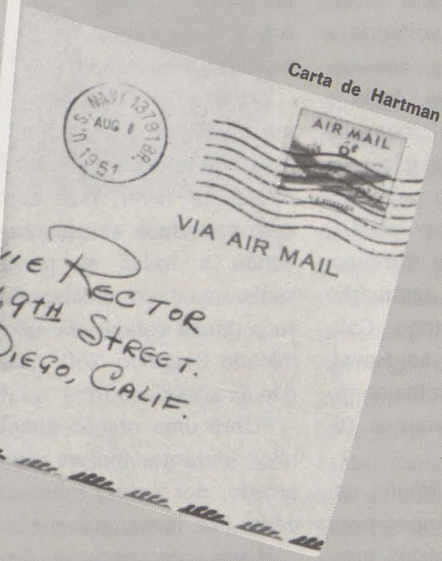 Carta de Hartman
U.S. NAVY 13791 BR.
AUG
1951
AIR MAIL
6¢
VIA AIR MAIL
RECTOR
9TH STREET.
DIEGO, CALIF.